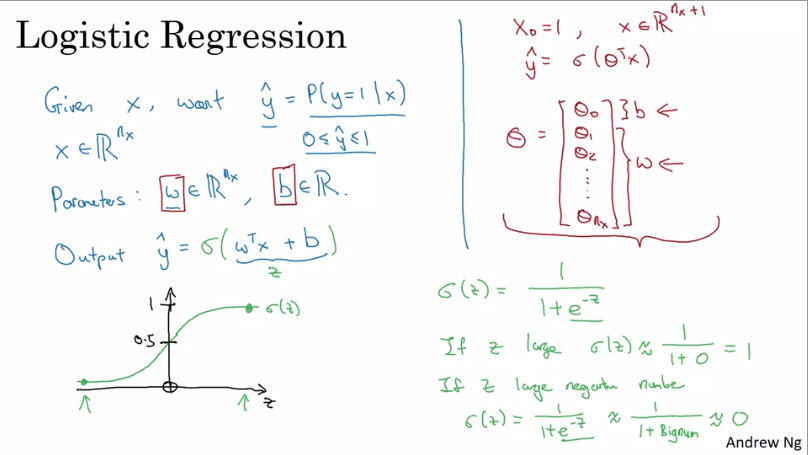 Logistic Regression
Given x, want ŷ = P(y=1|x)
x ∈ ℝ^{n_x}
0 ≤ ŷ ≤ 1
Parameters: w ∈ ℝ^{n_x}, b ∈ ℝ.
Output ŷ = σ(wᵀx + b)
z
1
0.5
σ(z)
z
x₀ = 1, x ∈ ℝ^{n_x+1}
ŷ = σ(θᵀx)
θ = [θ₀ θ₁ θ₂ ⋮ θ_{n_x}]
} b ←
} w ←
σ(z) = 1 / (1 + e^{-z})
If z large σ(z) ≈ 1 / (1 + 0) = 1
If z large negative number
σ(z) = 1 / (1 + e^{-z}) ≈ 1 / (1 + Bignum) ≈ 0
Andrew Ng